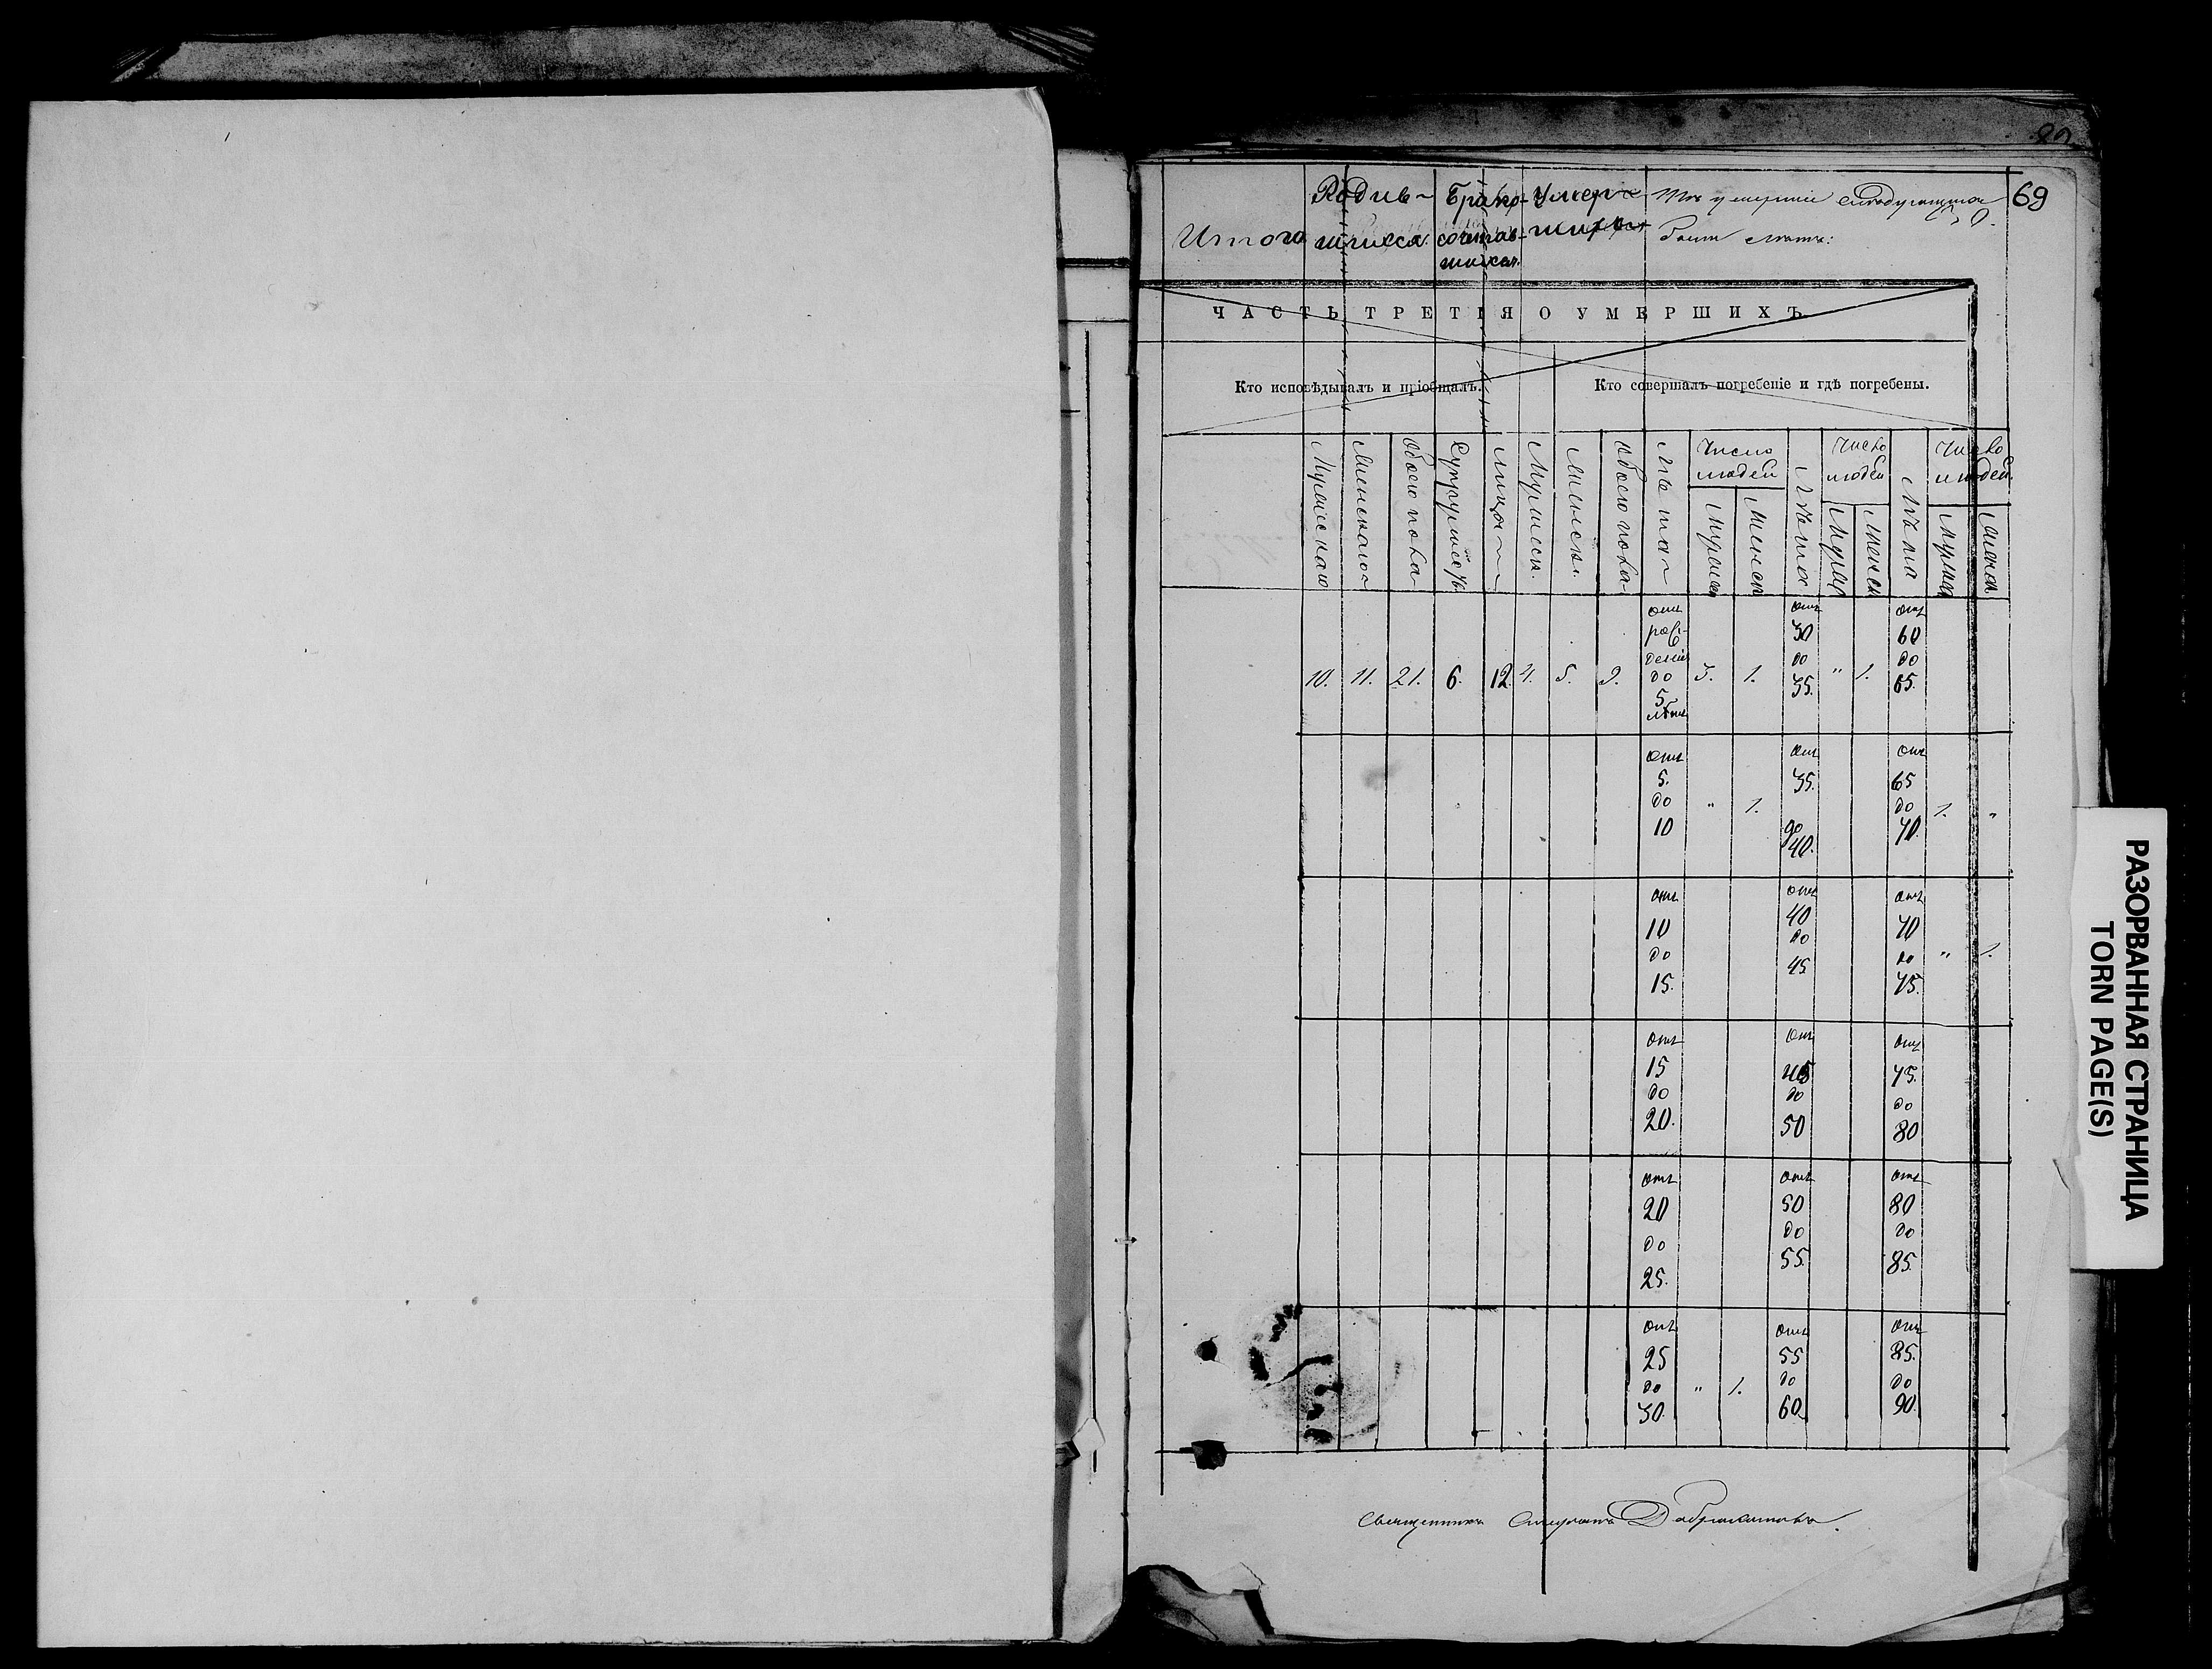 69
Родив- Брако- Умер-
Итого шихся. сочетав- ших
шихся.
Изъ умершихъ
было лѣтъ:
ЧАСТЬ ТРЕТІЯ О УМЕРШИХЪ
Кто исповѣдывалъ и пріобщалъ. Кто совершалъ погребеніе и гдѣ погребены.
Мужескаго Женскаго Обоего пола Супружествъ Лицъ Мужеск. Женск. Обоего пола Лѣта Число людей Мужеск Женск Лѣта Число людей Мужес Женск Лѣта Число людей Мужес Женск
10. 11. 21. 6. 12. 4. 5. 9. отъ рождения до 5 лѣтъ 3. 1. отъ 30 до 35. " 1. отъ 60 до 65.
отъ 5. до 10 " 1. отъ 35. до 40. отъ 65 до 70. 1. "
отъ 10 до 15. отъ 40 до 45 отъ 70 до 75. " 1.
отъ 15 до 20. отъ 45 до 50 отъ 75. до 80
отъ 20 до 25. отъ 50 до 55. отъ 80 до 85.
отъ 25 до 30. " 1. отъ 55 до 60 отъ 85. до 90.
Священникъ
РАЗОРВАННАЯ СТРАНИЦА
TORN PAGE(S)